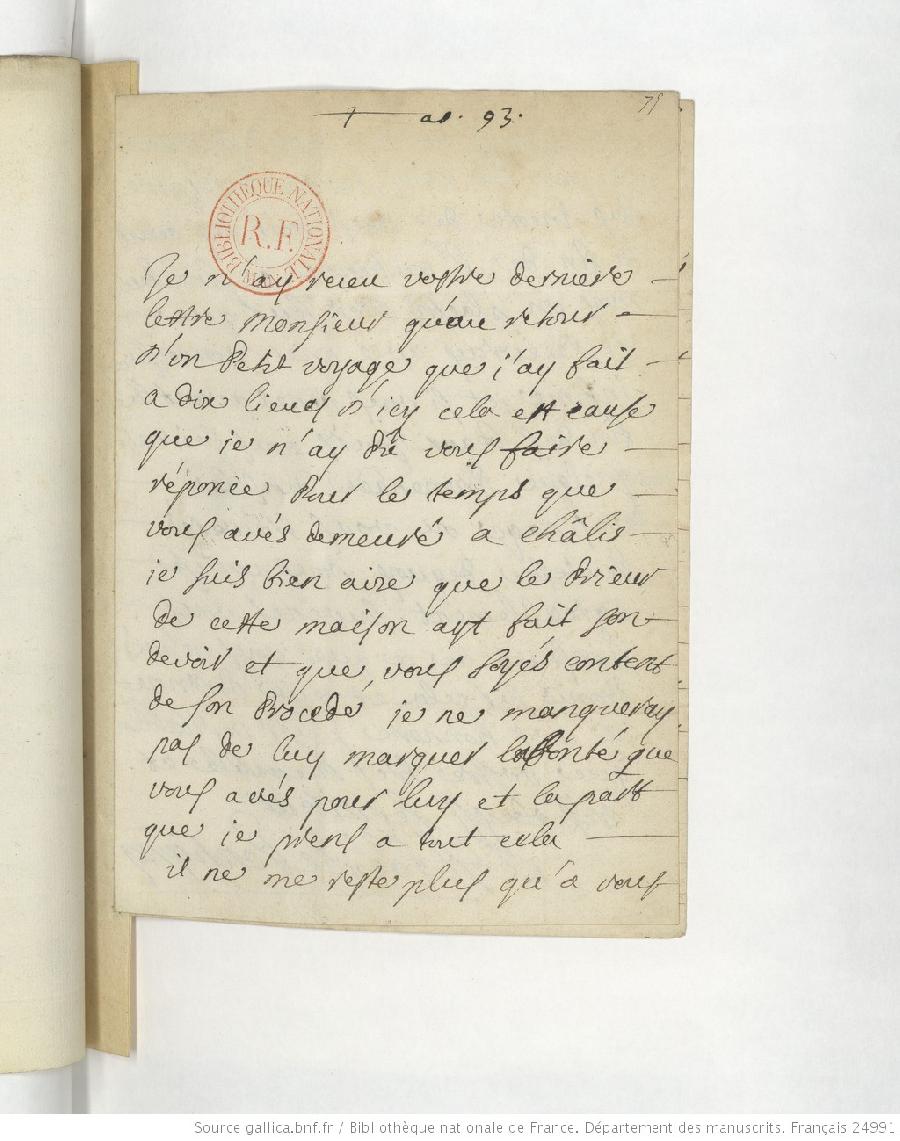 75
† ao. 93.
BIBLIOTHEQUE NATIONALE
R.F.
MSS
Je n'ay receu vostre derniere
lettre Monsieur qu'au retour
d'un petit voyage que j'ay fait
a dix lieues d'icy cela est cause
que ie n'ay pû vous faire
réponce pour le temps que
vous avés demeuré a Châlis
ie suis bien aise que le prieur
de cette maison ayt fait son
devoir et que vous soyés content
de son procedé ie ne manqueray
pas de luy marquer la bonté que
vous avés pour luy et la part
que ie prens a tout cela
il ne me reste plus qu'a vous
Source gallica.bnf.fr / Bibliothèque nationale de France. Département des manuscrits. Français 24991